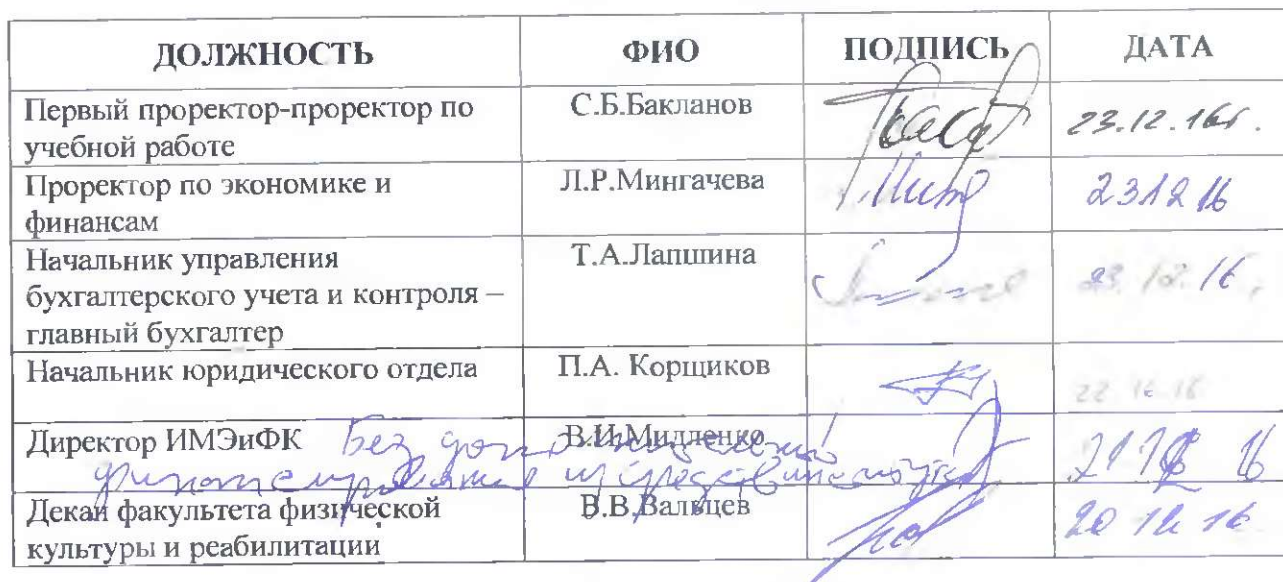 ДОЛЖНОСТЬ ФИО ПОДПИСЬ ДАТА
Первый проректор-проректор по учебной работе С.Б.Бакланов 23.12.16г.
Проректор по экономике и финансам Л.Р.Мингачева 23 12 16
Начальник управления бухгалтерского учета и контроля – главный бухгалтер Т.А.Лапшина 23.12.16
Начальник юридического отдела П.А. Корщиков
Директор ИМЭиФК В.И.Мидленко
Без дополнительного
финансирования из средств института
Декан факультета физической культуры и реабилитации В.В.Вальцев 20 12 16